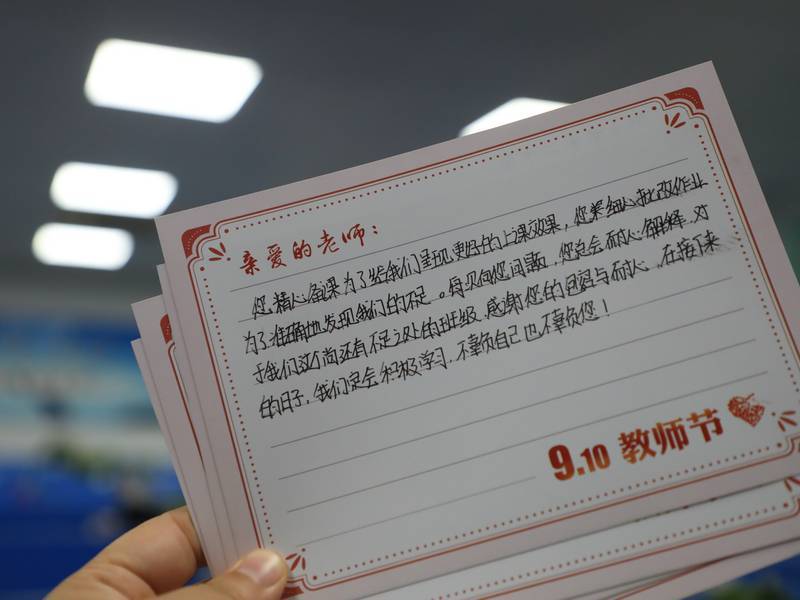 亲爱的老师：
您精心备课为了给我们呈现更好的上课效果，您来细心批改作业
为了准确地发现我们的不足。每次向您问题，您总会耐心解释，对
于我们这个尚还有不足之处的班级，感谢您的包容与耐心，在接下来
的日子，我们定会积极学习，不辜负自己也不辜负您！
9.10 教师节